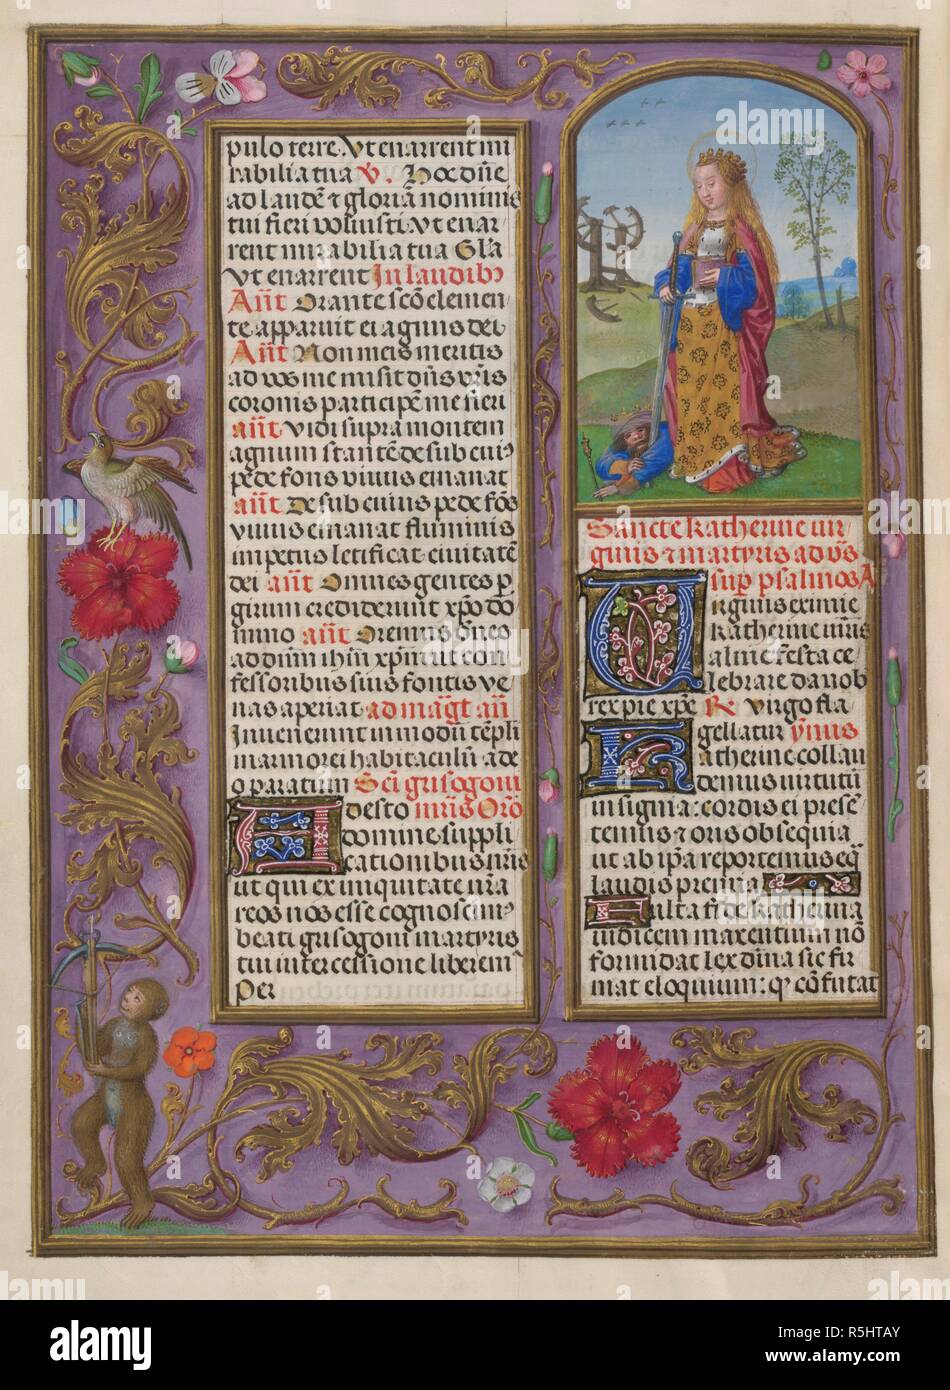 pulo terre. Ut enarrent mi
rabilia tua V. Hoc dñe
ad laudē ⁊ gloriā nominis
tui fieri voluisti. Ut enar
rent mirabilia tua Gl'a
Ut enarrent In laudibꝰ
Añt Orante scō clemen
te apparuit ei agnus dei
Añt Non meis meritis
ad vos me misit dñs vr̃is
coronis participē me fieri
añt Vidi supra montem
agnum stantē de sub cuiꝰ
pede fons vivus emanat
añt De sub cuius pede fōs
vivus emanat fluminis
impetus letificat civitatē
dei añt Omnes gentes p
girum crediderunt xp̄o do
mino añt Oremus om̄es
ad dñm ihm̄ xpm̄ ut con
fessoribus suis fontis ve
nas aperiat ad mag̃t añ
Invenerunt in modū tēpli
marmorei habitaculū a de
o paratum Sc̄i grisogoni
Adesto mr̃is Orõ
domine suppli
cationibus nr̃is
ut qui ex iniquitate nr̃a
reos nos esse cognoscimꝰ
beati grisogoni martyris
tui intercessione liberemꝰ
Per
Sancte Katherine vir
ginis ⁊ martyris ad vs̃
sup̃ psalmos A
Virginis eximie
Katherine m̃ris
alme festa ce
lebrare da nob
rex pie xpē R Virgo fla
gellatur ymnus
Katherine collau
demus virtutū
insignia: cordis ei presē
temus ⁊ oris obsequia
ut ab ipa reportemus eq̃
laudis premia
Fulta fide Katherina
iudicem maxentium nō
formidat lex divina sic fir
mat eloquium: qꝫ cōfutat
alamy
Image ID: R5HTAY
www.alamy.com